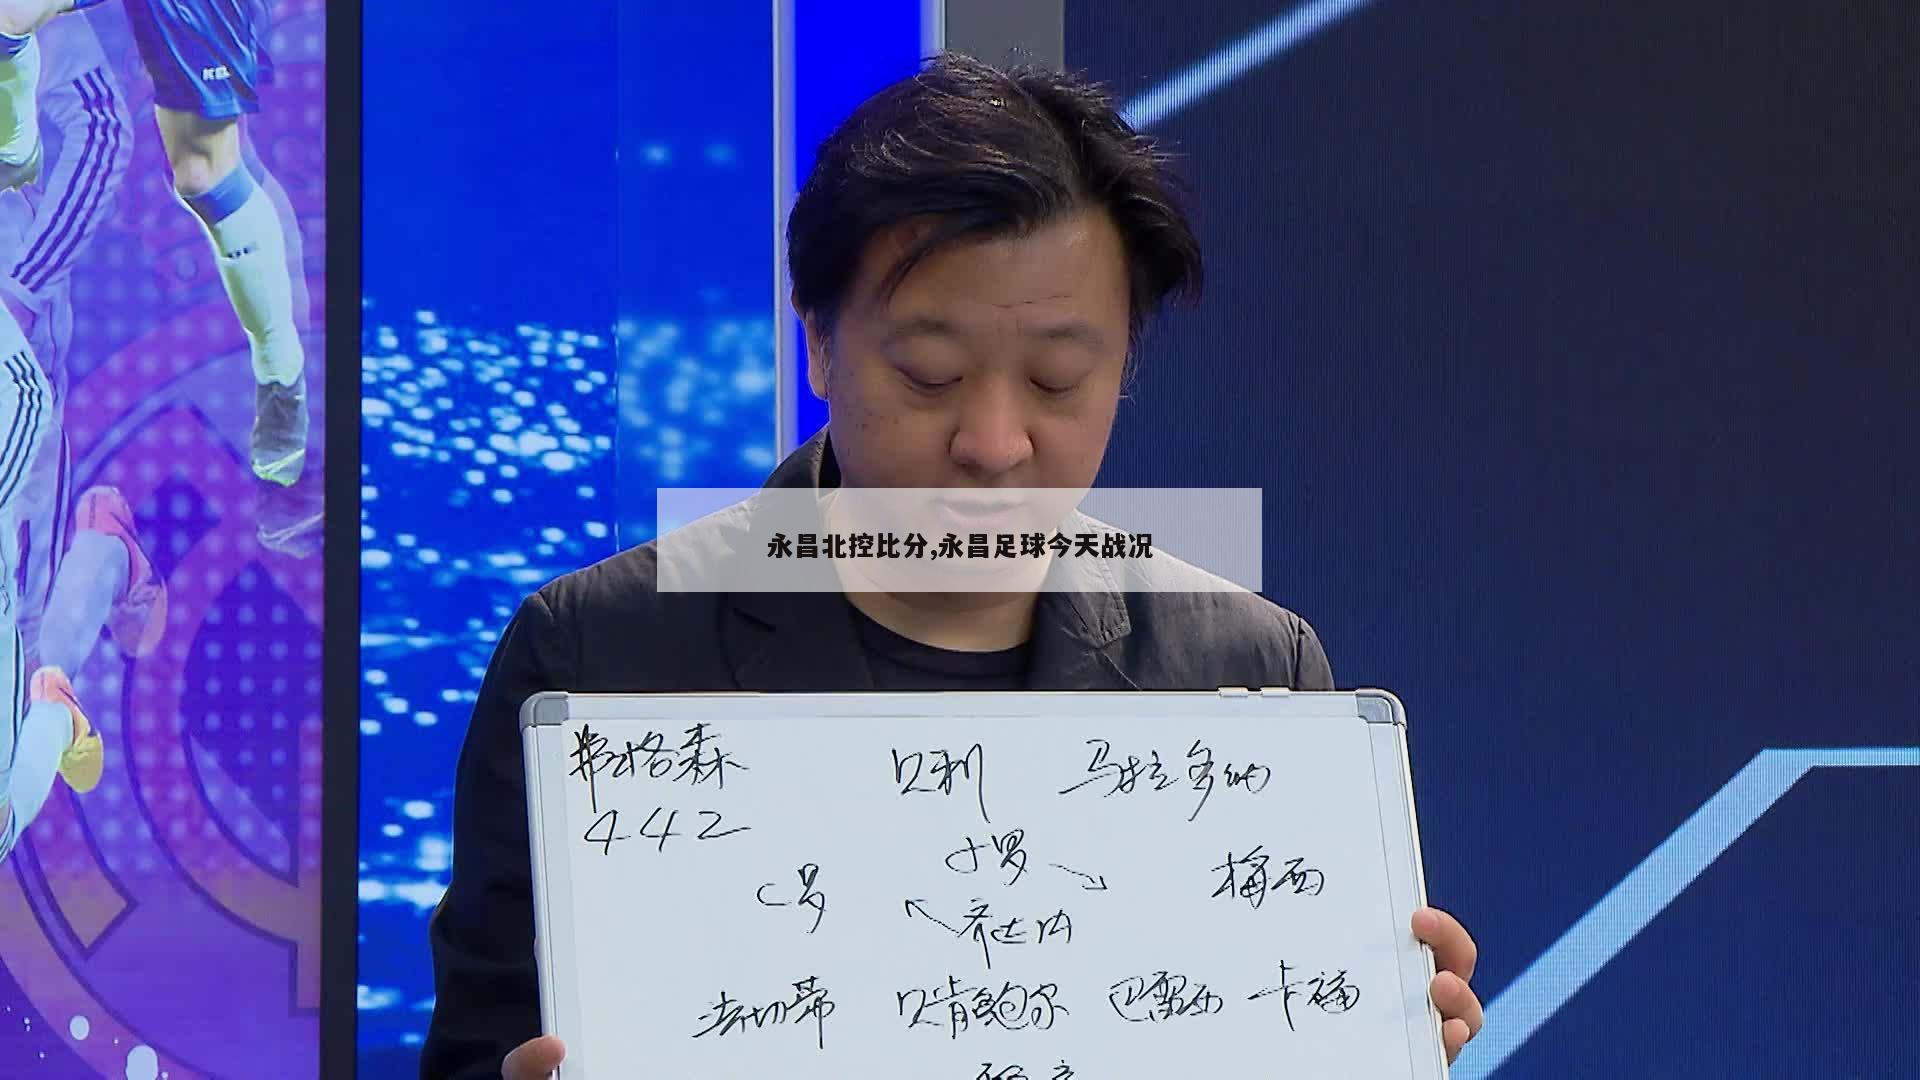 永昌北控比分,永昌足球今天战况
弗格森 贝利 马拉多纳
442
小罗
C罗 梅西
齐达内
法切蒂 贝肯鲍尔 巴雷西 卡福